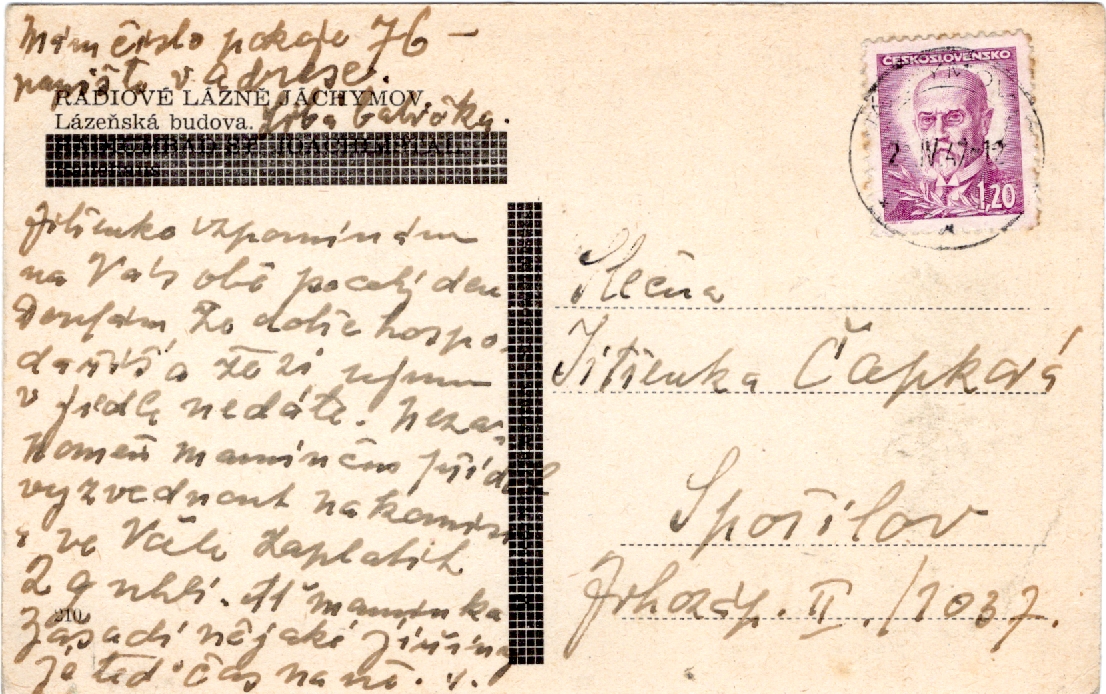 Mám číslo pokoje 76 –
napište v adrese.
RADIOVÉ LÁZNĚ JÁCHYMOV
Lázeňská budova.
Jiřenko vzpomínám
na Vás obě po celý den
Doufám že dobře hospo-
daříš a že si
v jídle nedáte. Neza-
pomeň mamince příděl
vyzvednout na komisi
i ve Včele zaplatit
2 q uhlí. Ať maminka
910
zasadí nějaké jiřiny
je teď čas na ně.
ČESKOSLOVENSKO
1,20
2 IV 47-12
Slečna
Jiřienka Čapková
Spořilov
Jihozáp. II./1037.